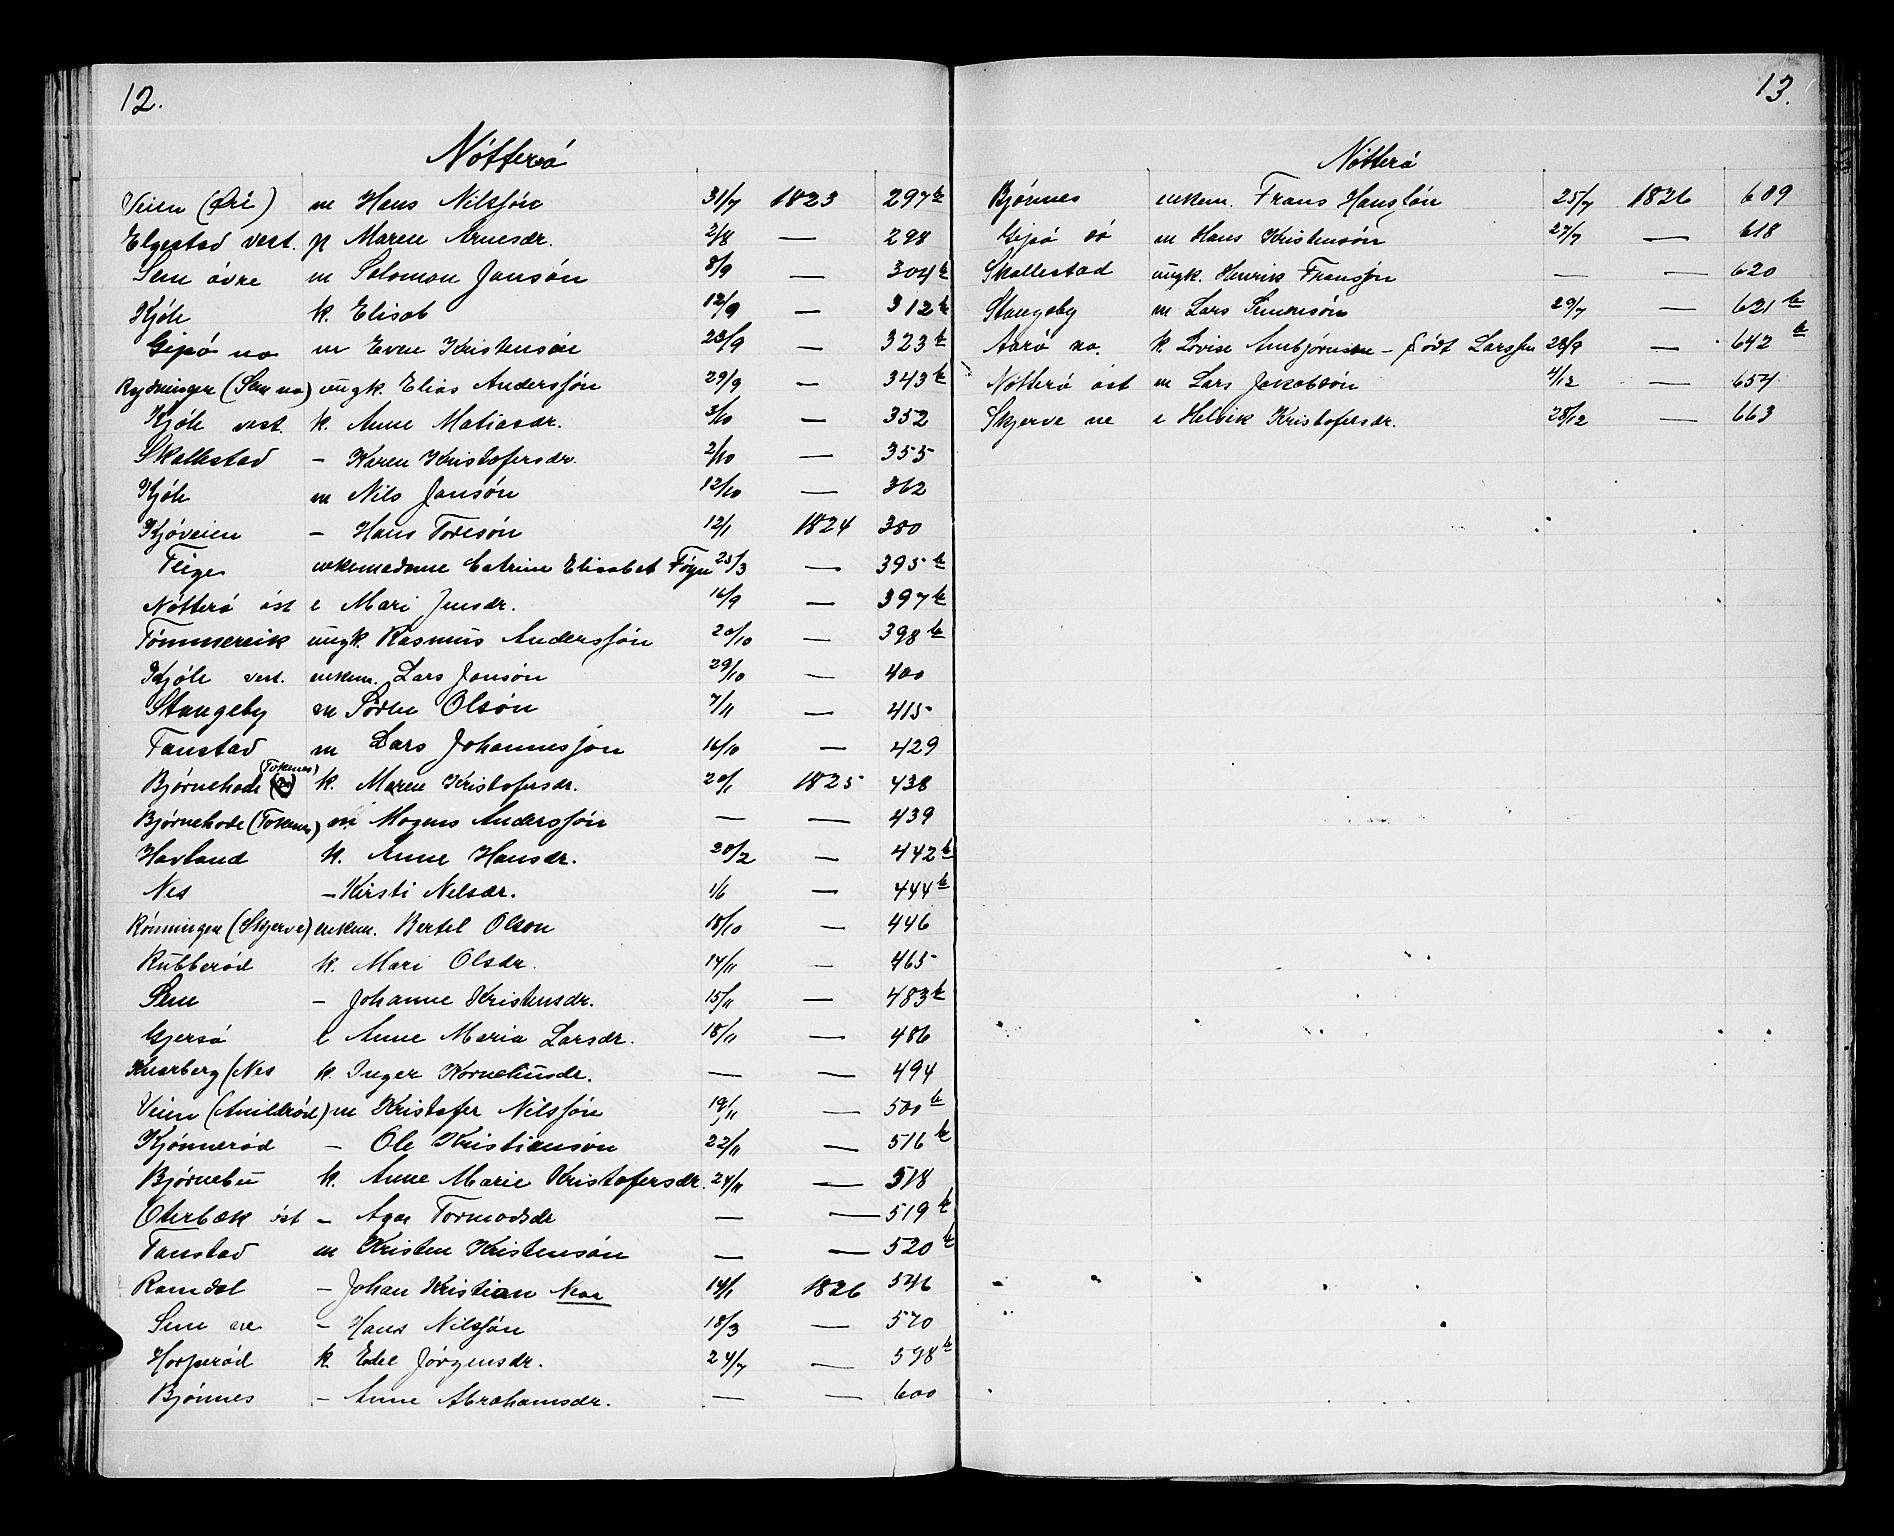 12.
Nótteró
Veien (Öri) m Hans Nilssón 31/7 1823 297b
Elgestad vest. p Maren Arnesdr. 2/8 — 298
Sem óvre m Salomon Jansón 8/9 — 304b
Kjóle k. Elisab 12/9 — 312b
Gipó no m Even Kristensón 23/9 — 323b
Rydningen (Sem no) ungk. Elias Anderssón 29/9 — 343b
Kjóle vest. k. Anne Matiasdr. 3/10 — 352
Skallestad - Karen Kristofersdr. 2/10 — 355
Kjóle m Nils Jansón 12/10 — 362
Kjóveien - Hans Toresón 12/1 1824 380
Teige enkemadame Catrine Elisabet Fóyn 23/3 — 395b
Nótteró óst e Mari Jensdr. 16/9 — 397b
Tómmereik ungk. Rasmus Anderssón 20/10 — 398b
Kjóle vest. enkem. Lars Jansón 29/10 — 400
Stangeby m Sóren Olsón 7/11 — 415
Tanstad m Lars Johannessón 16/10 — 429
Bjórnehode (Tokenes) k. Maren Kristofersdr. 20/1 1825 438
Bjórnehode (Tokenes) m Mogens Anderssón — — 439
Havland k. Anne Hansdr. 20/2 — 442b
Nes - Kirsti Nelsdr. 1/6 — 444b
Rónningen (Skjerve) enkem. Bertel Olson 18/10 — 446
Rubberód k. Mari Olsdr. 14/11 — 465
Sem - Johanne Kristensdr. 15/11 — 483b
Gjersó e Anne Maria Larsdr. 18/11 — 486
Knarberg (Nes k. Inger Korneliusdr. — — 494
Veien (Anildród) m Kristofer Nilssón 19/11 — 500b
Kjónneród - Ole Kristiansón 22/11 — 516b
Bjórnebu k. Anne Marie Kristofersdr. 24/11 — 518
Oterbæk óst - Agae Tormodsdr — — 519b
Tanstad m Kristen Kristensón — — 520b
Ramdal - Johan Kristian Noe 14/1 1826 546
Sem ne - Hans Nilssón 18/3 — 570
Horperód k. Edel Jórgensdr. 24/7 — 598b
Bjónnes - Anne Abrahamsdr. — — 600
13.
Nótteró
Bjónnes enkem. Frans Hanssón 25/7 1826 609
Gipó só m Hans Kristensón 27/7 — 618
Skallestad ungk. Henrik Franssón — — 620
Stangeby m Lars Simonsón 29/7 — 621b
Aaró no. k. Lovise Anbjórnsen - fódt Larssen 28/9 — 642b
Nótteró óst m Lars Jakobsón 4/12 — 654
Skjerve ne e Helvik Kristofersdr. 28/12 — 663